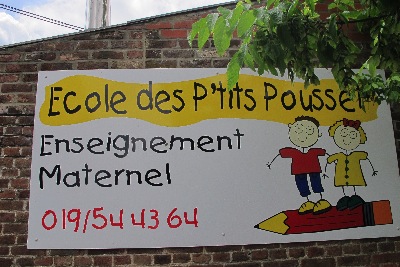 Ecole des P'tits Pousset
Enseignement
Maternel
019/54 43 64